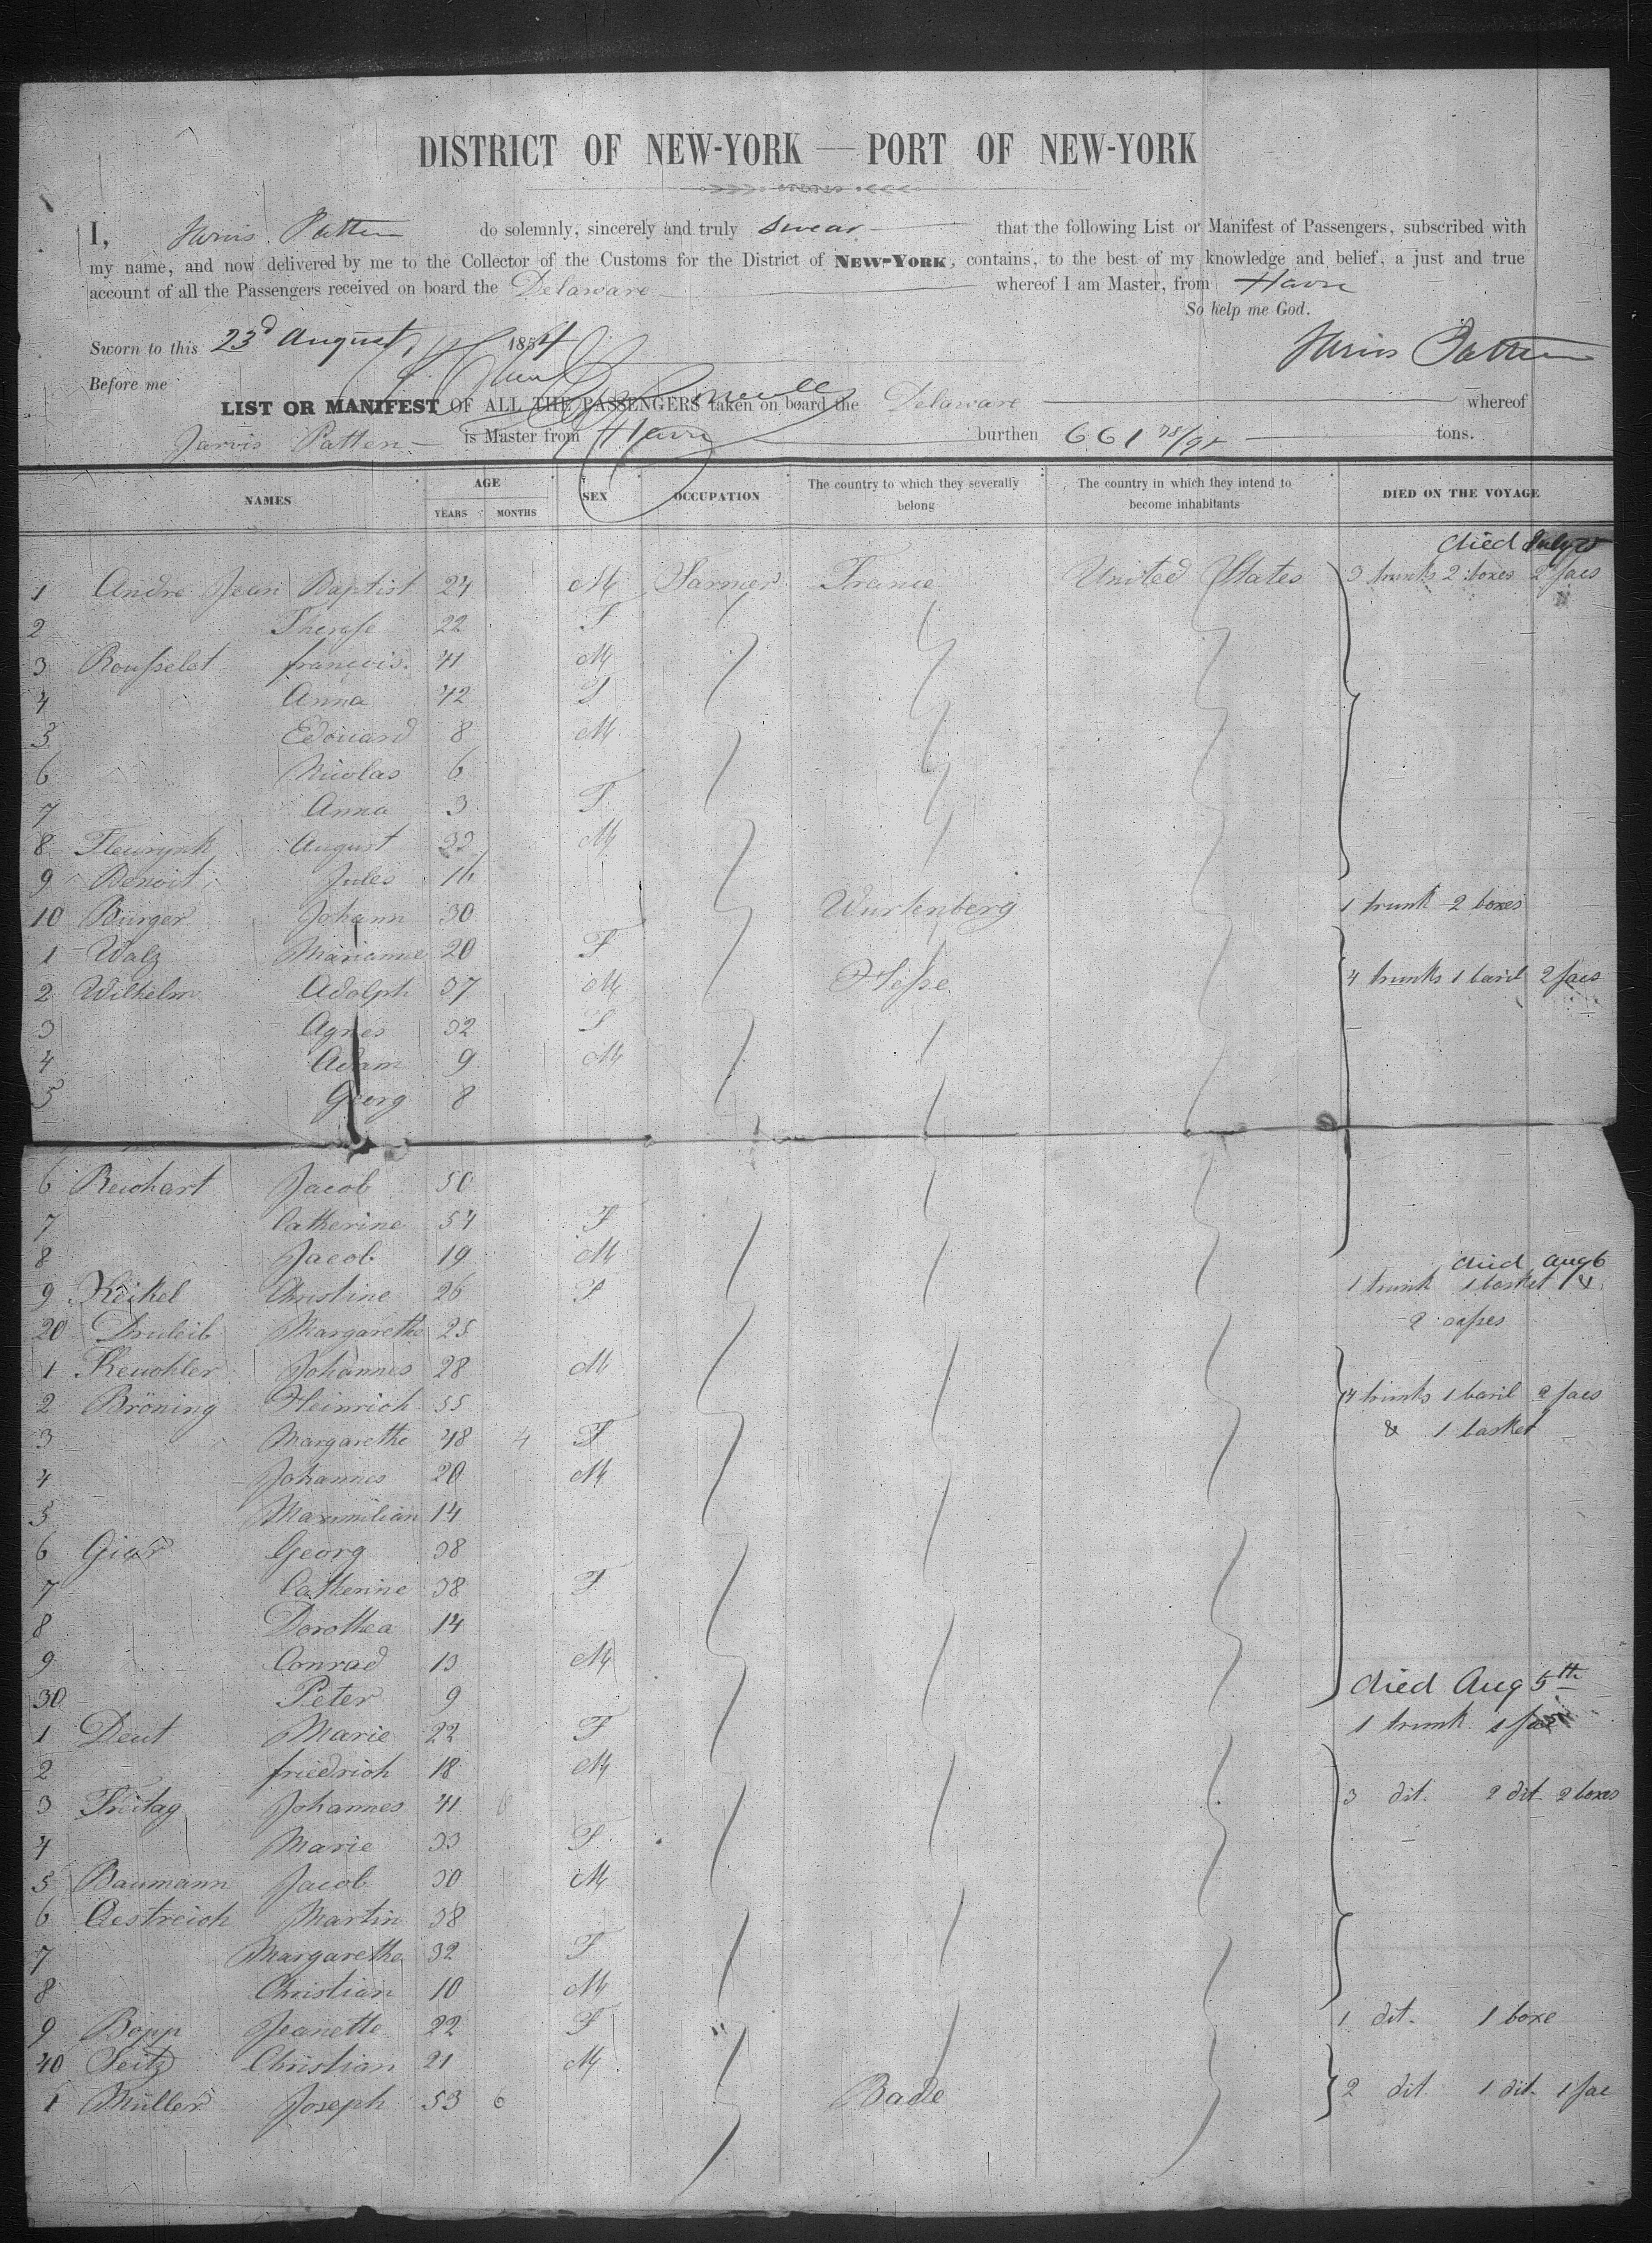 DISTRICT OF NEW-YORK — PORT OF NEW-YORK
I, Jarvis Patten do solemnly, sincerely and truly swear that the following List or Manifest of Passengers, subscribed with
my name, and now delivered by me to the Collector of the Customs for the District of NEW-YORK, contains, to the best of my knowledge and belief, a just and true
account of all the Passengers received on board the Delaware whereof I am Master, from Havre
So help me God.
Sworn to this 23d August 1854
Jarvis Patten
Before me
LIST OR MANIFEST OF ALL THE PASSENGERS taken on board the Delaware whereof
Jarvis Patten is Master from Havre burthen 661 tons.
NAMES AGE SEX OCCUPATION The country to which they severally belong The country in which they intend to become inhabitants DIED ON THE VOYAGE
YEARS MONTHS
died July
1 Andre Jean Baptist 24 M Farmer France United States 3 trunks 2 boxes 2 sacs
2 Therese 22 F
3 Rousselet françois 41 M
4 Anna 42 F
5 Edouard 8 M
6 Nicolas 6
7 Anna 3 F
8 August 33 M
9 Benoit Jules 16
10 Bürger Johann 30 Wurtenberg 1 trunk 2 boxes
1 Walz Marianne 20 F
2 Wilhelm Adolph 37 M Hesse 4 trunks 1 baril 2 sacs
3 Agnes 32 F
4 Adam 9 M
5 Georg 8
6 Reichart Jacob 50
7 Catherine 54 F
8 Jacob 19 M
died Aug 6
9 Keikel Christine 26 F 1 trunk 1 basket &
20 Margarethe 25 2 caises
1 Keuchler Johannes 28 M
2 Bröning Heinrich 55 4 trunks 1 baril 2 sacs
3 Margarethe 48 4 F & 1 basket
4 Johannes 20 M
5 Maximilian 14
6 Georg 38
7 Catherine 38 F
8 Dorothea 14
9 Conrad 13 M
30 Peter 9 died Aug 5th
1 Deut Marie 22 F 1 trunk 1 sac
2 friedrich 18 M
3 Freitag Johannes 41 6 3 dit. 2 dit 2 boxes
4 Marie 33 F
5 Baumann Jacob 30 M
6 Oestreich Martin 38
7 Margarethe 32 F
8 Christian 10 M
9 Bopp Jeanette 22 F 1 dit. 1 boxe
40 Seitz Christian 21 M
1 Müller Joseph 53 6 Bade 2 dit 1 dit 1 sac